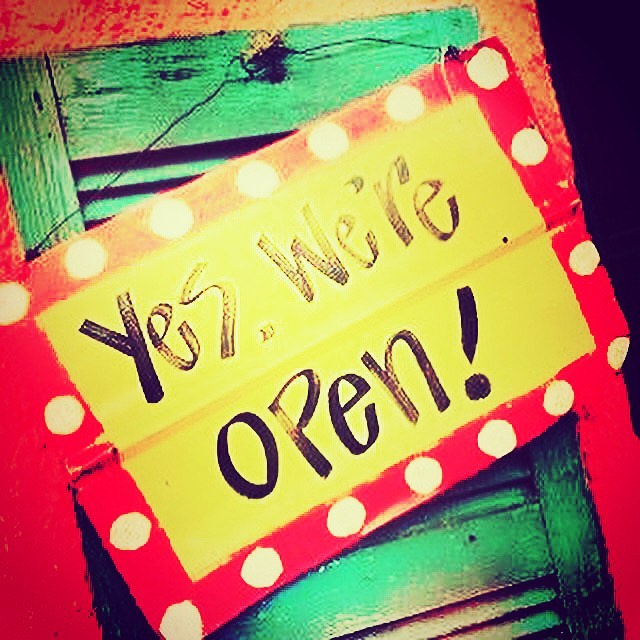 Yes, We're
OPen!